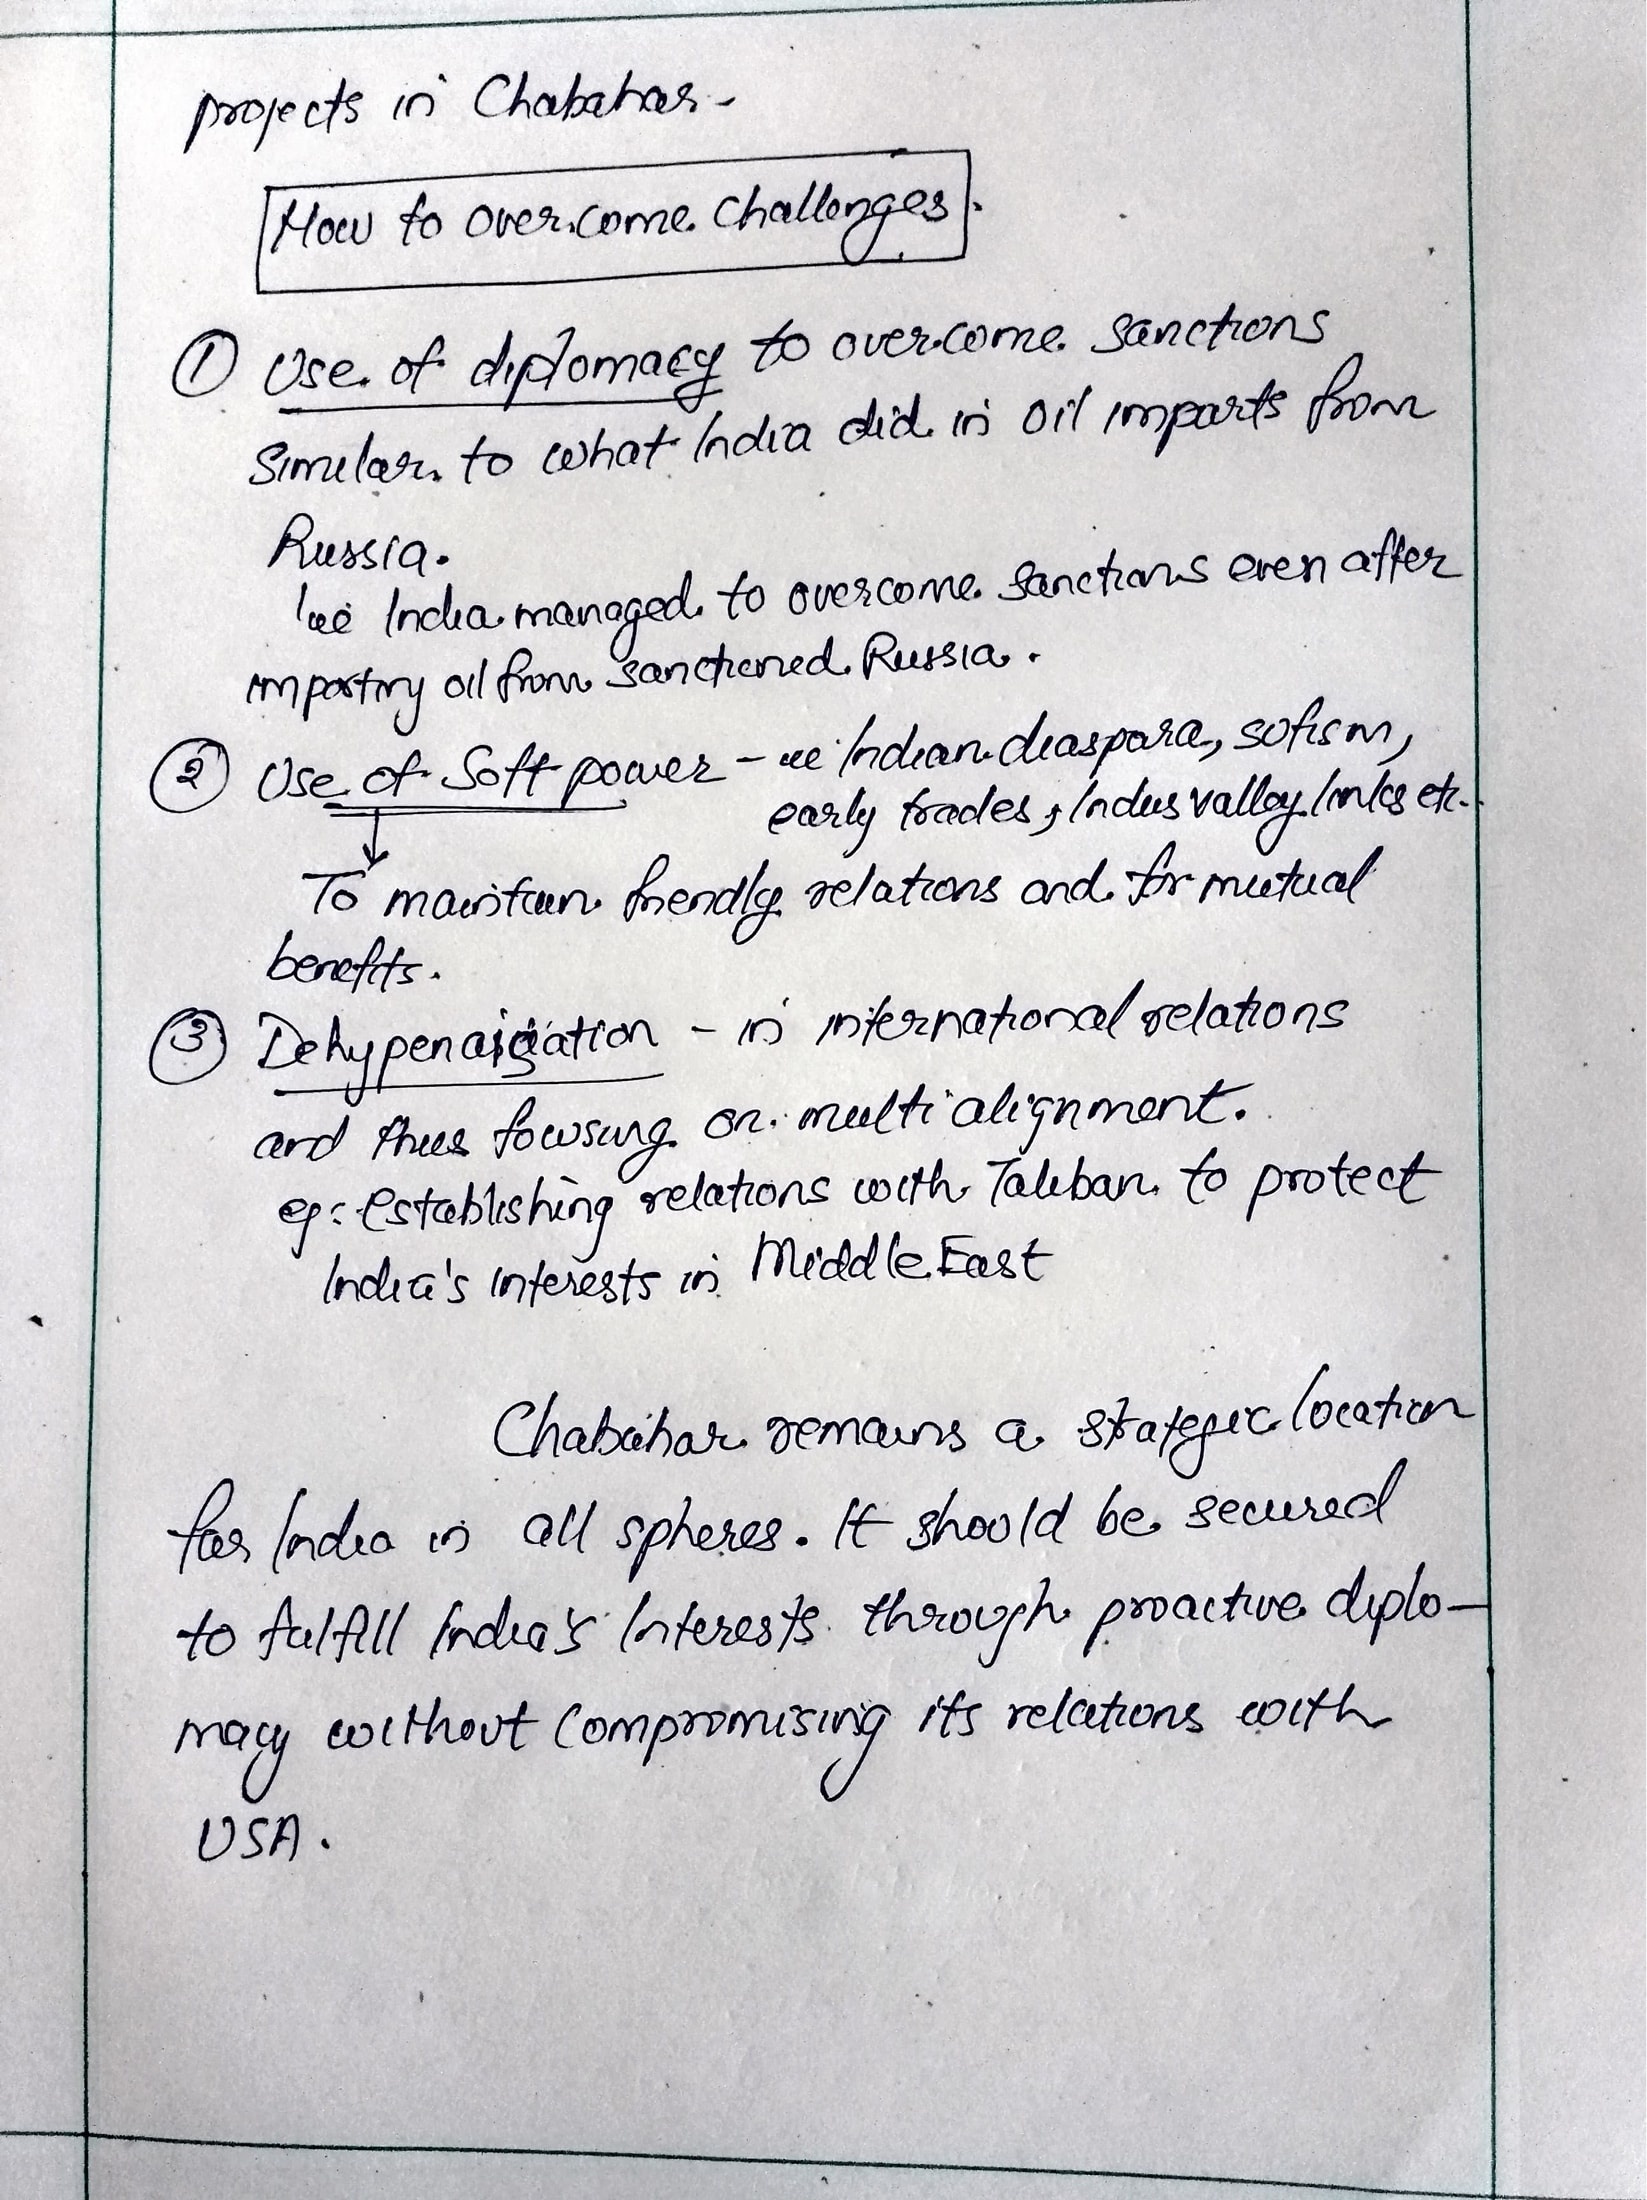 projects in Chabahar -
How to overcome challenges.
① Use of diplomacy to overcome sanctions
Similar to what India did in oil imports from
Russia.
ie India managed to overcome sanctions even after
importing oil from sanctioned Russia.
② Use of Soft power - ie Indian diaspora, sofism,
early trades, Indus valley links etc.
To maintain friendly relations and for mutual
benefits.
③ Dehypenaisation - in international relations
and thus focusing on multi alignment.
eg: Establishing relations with Taliban to protect
India's interests in Middle East
Chabahar remains a strategic location
for India in all spheres. It should be secured
to fulfill India's Interests through proactive diplo-
macy without compromising its relations with
USA.